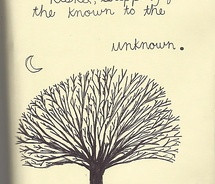 of
the known to the
unknown.